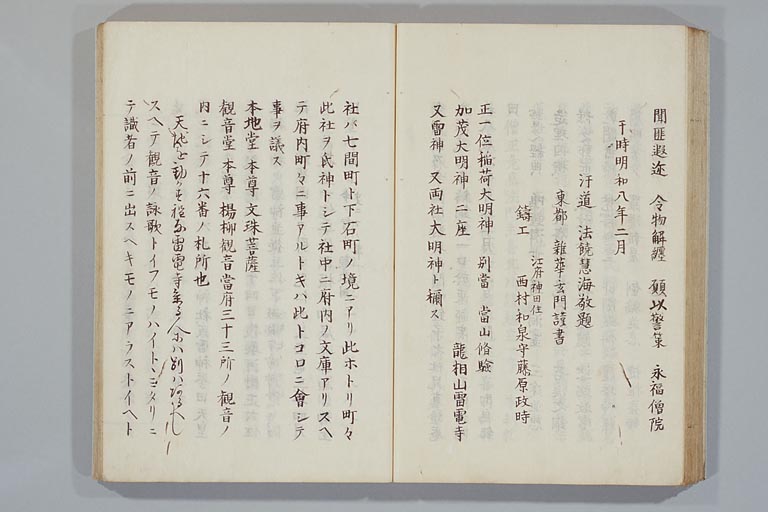 聞匪遐迩 令物解纒 願以警策 永福僧院
于時明和八年二月
汙道 法饒慧海敬題
東都 雜華玄門謹書
鑄工 江府神田住 西村和泉守藤原政時
正一位稲荷大明神 別當 當山修驗
加茂大明神 二座 龍相山雷電寺
又雷神 又両社大明神ト稱ス
社ハ七間町ト下石町ノ境ニアリ此ホトリ町々
此社ヲ氏神トシテ社中ニ府内ノ文庫アリスヘ
テ府内町々ニ事アルトキハ此トコロニ會シテ
事ヲ議ス
本地堂 本尊 文珠菩薩
観音堂 本尊 楊柳観音當府三十三所ノ観音ノ
内ニシテ十六番ノ札所也
天地を動かす程な雷電寺参る人々は別ハあらし
スヘテ観音ノ詠歌トイフモノハイトミヨタリニ
テ識者ノ前ニ出スヘキモノニアラストイヘト